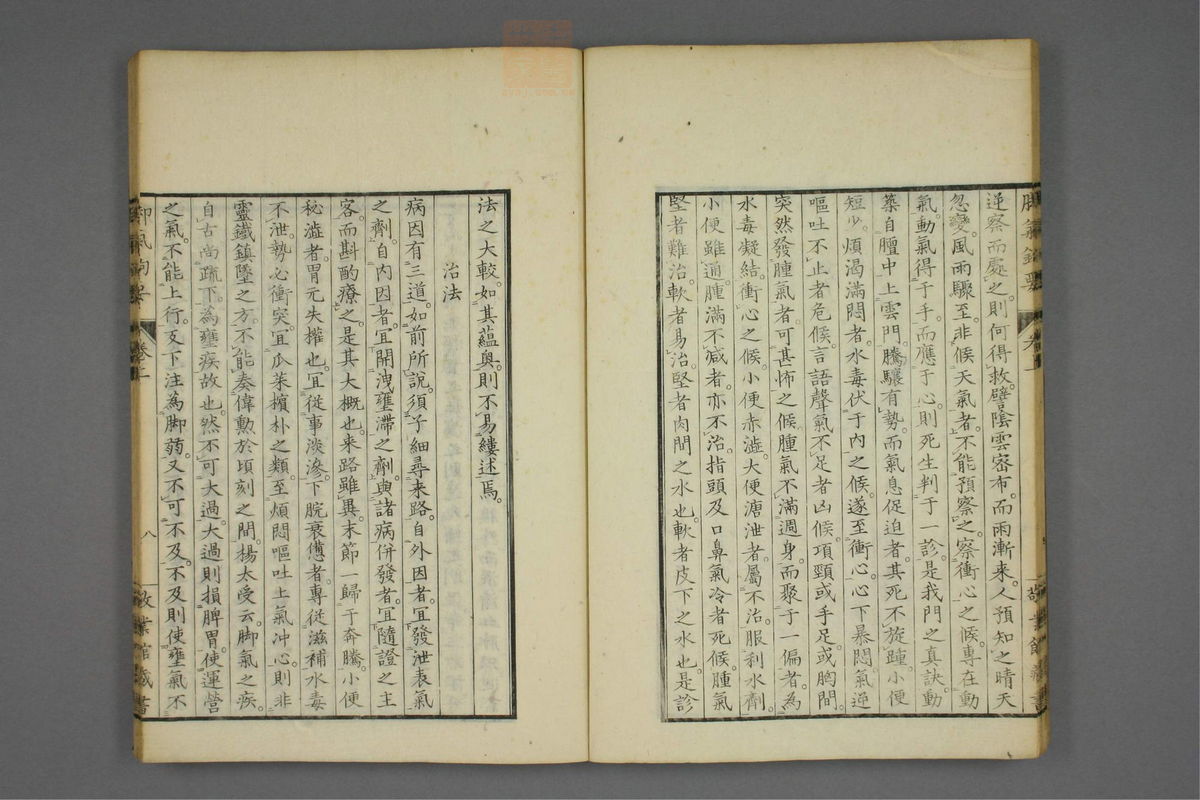 逆察而處之則何得救譬陰雲密布而雨漸來人預知之晴天
忽變風雨驟至非候天氣者不能預察之察衝心之候專在動
氣動氣得于手而應于心則死生判于一診是我門之真訣動
築自膻中上雲門騰驤有勢而氣息促迫者其死不旋踵小便
短少煩渴滿悶者水毒伏于内之候遂至衝心心下暴悶氣逆
嘔吐不止者危候言語聲氣不足者凶候項頸或手足或胸間
突然發腫氣者可甚怖之候腫氣不滿週身而聚于一偏者為
水毒凝結衝心之候小便赤澁大便溏泄者屬不治服利水劑
小便雖通腫滿不減者亦不治指頭及口鼻氣冷者死候腫氣
堅者難治軟者易治堅者肉間之水也軟者皮下之水也是診
法之大較如其蘊奥則不易縷述焉
治法
病因有三道如前所説須子細尋来路自外因者宜發泄表氣
之劑自内因者宜開洩壅滯之劑與諸病併發者宜隨證之主
客而斟酌療之是其大概也来路雖異末節一歸于奔騰小便
秘澁者胃元失權也宜從事淡滲下脘衰憊者專従滋補水毒
不泄勢必衝突宜瓜蒂檳朴之類至煩悶嘔吐上氣冲心則非
靈鐵鎮墜之方不能奏偉勲於頃刻之間楊太受云脚氣之疾
自古尚疏下為壅疾故也然不可大過大過則損脾胃使運營
之氣不能上行反下注為脚弱又不可不及不及則使壅氣不
卷上
八